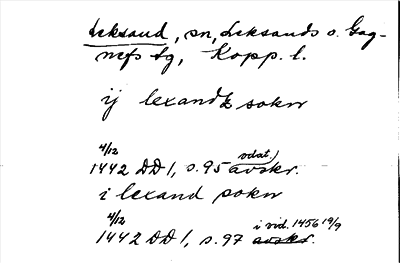 Leksand, sn, Leksands o. Gag-
nefs tg, Kopp. l.
ij lexandz sokn
4/12
1442 DD 1, s. 95 avskr.
i lexand sokn
4/12 i vid. 1456 19/9
1442 DD 1, s. 97 avskr.